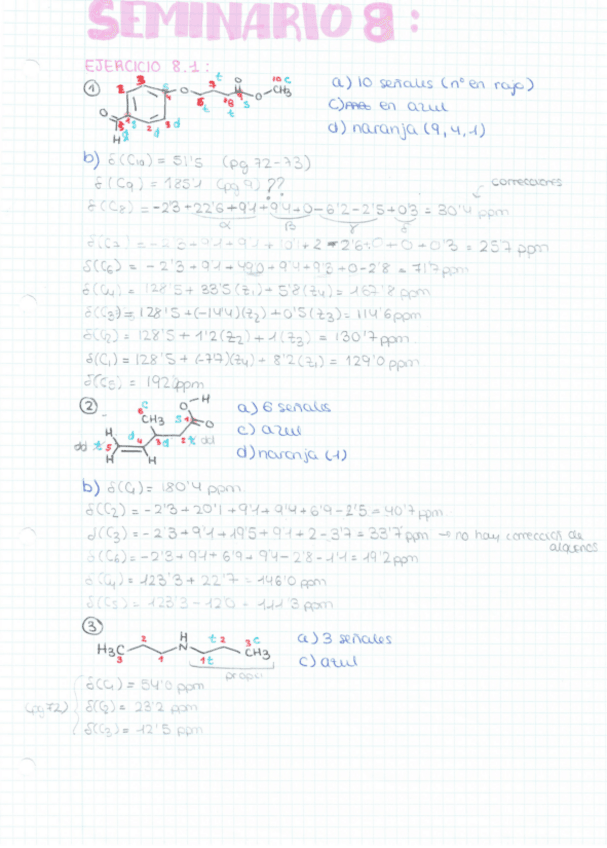 SEMINARIO 8:
EJERCICIO 8.1:
① a) 10 señales (nº en rojo)
c) en azul
d) naranja (9, 4, 1)
b) δ(C10) = 51'5 (pg 72-73)
δ(C9) = 185'1 (pg 9) ??
correcciones
δ(C8) = -2'3 + 22'6 + 9'1 + 9'4 + 0 - 6'2 - 2'5 + 0'3 = 30'4 ppm
α β γ δ
= 25'7 ppm
δ(C6) = -2'3 + 9'1 + 49'0 + 9'4 + 9'3 + 0 - 2'8 = 71'7 ppm
δ(C4) = 128'5 + 33'5 (Z1) + 5'8 (Z4) = 167'8 ppm
δ(C3) = 128'5 + (-14'4)(Z2) + 0'5 (Z3) = 114'6 ppm
δ(C2) = 128'5 + 1'2 (Z2) + 1 (Z3) = 130'7 ppm
δ(C1) = 128'5 + (-7'7)(Z4) + 8'2 (Z1) = 129'0 ppm
δ(C5) = 192 ppm
② a) 6 señales
c) azul
d) naranja (1)
b) δ(C1) = 180'4 ppm
δ(C2) = -2'3 + 20'1 + 9'1 + 9'4 + 6'9 - 2'5 = 40'7 ppm
δ(C3) = -2'3 + 9'1 + 19'5 + 9'1 + 2 - 3'7 = 33'7 ppm → no hay corrección de
alquenos
δ(C6) = -2'3 + 9'1 + 6'9 + 9'4 - 2'8 - 1'1 = 19'2 ppm
δ(C4) = 123'3 + 22'7 = 146'0 ppm
δ(C5) = 123'3 - 12'0 = 111'3 ppm
③ a) 3 señales
c) azul
H3C N H CH3
propil
δ(C1) = 54'0 ppm
(pg 72) δ(C2) = 23'2 ppm
δ(C3) = 12'5 ppm